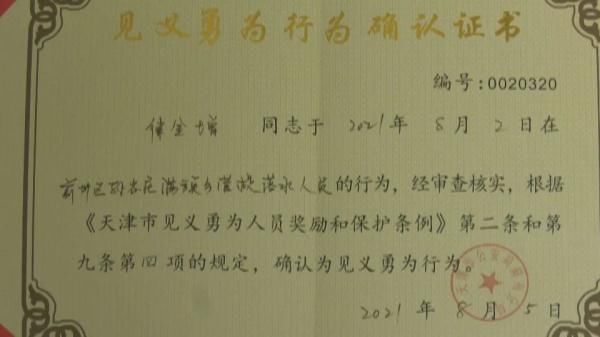 见义勇为行为确认证书
编号:0020320
金增 同志于 2021年 8月 2日在
蓟州区孙各庄满族乡营救落水人员的行为，经审查核实，根据
《天津市见义勇为人员奖励和保护条例》第二条和第
九条第四项的规定，确认为见义勇为行为。
2021 年 8 月 5 日